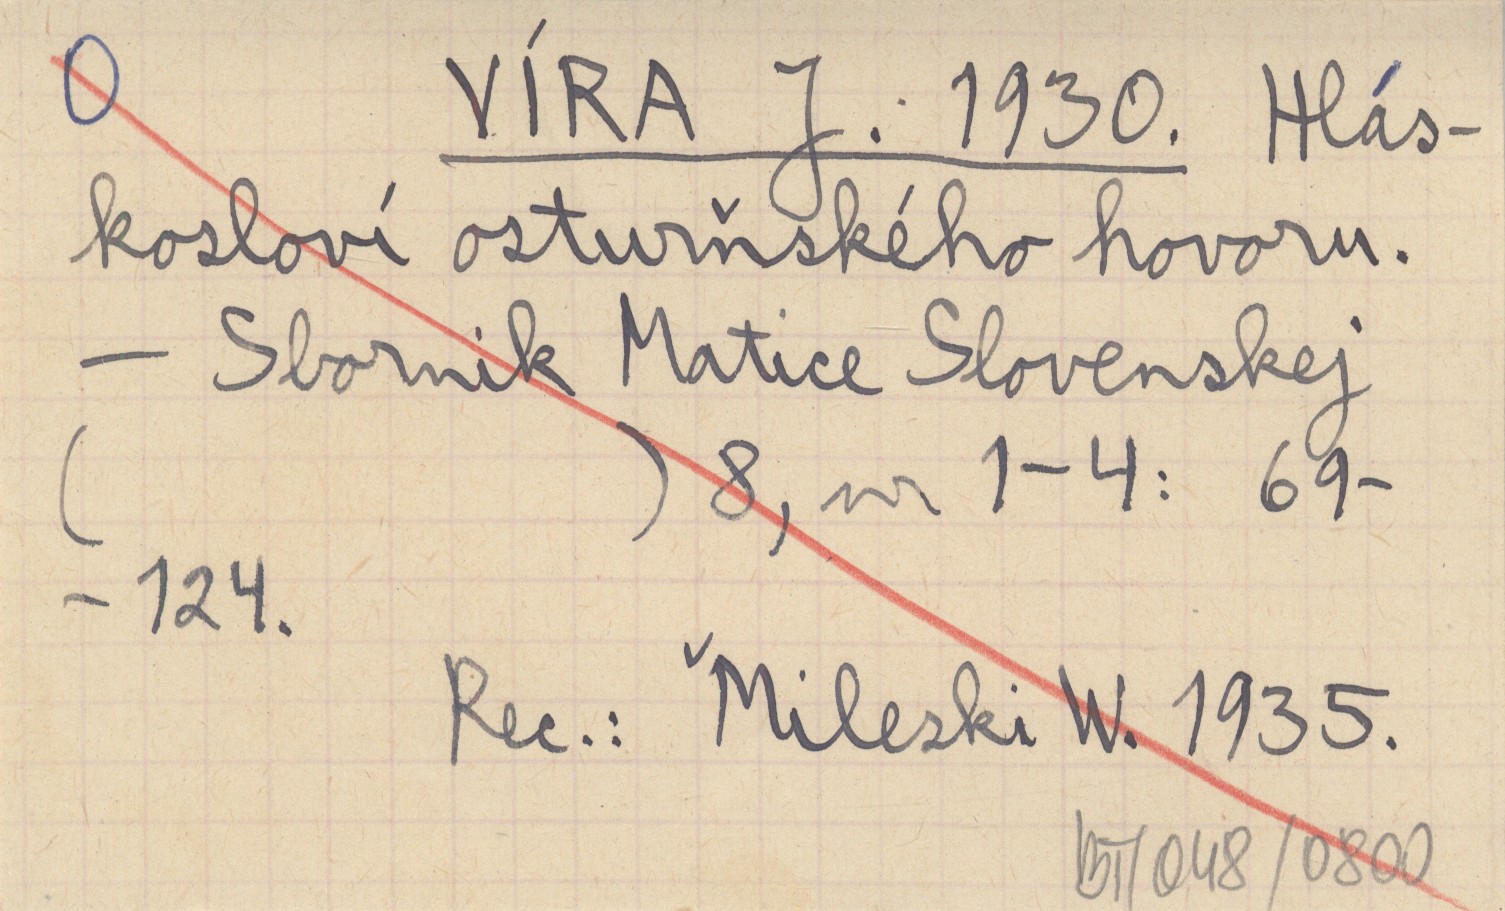 O VÍRA J. : 1930. Hlás-
kosloví osturňského hovoru.
— Sbornik Matice Slovenskej
( ) 8, nr 1-4: 69-
- 124.
Rec.: ˇMileski W. 1935.
BT/048/0800